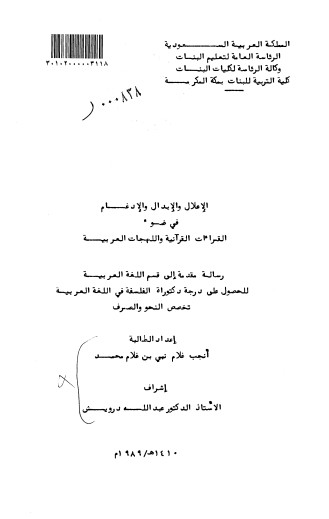 المملكة العربية السعودية
الرئاسة العامة لتعليم البنات
وكالة الرئاسة لكليات البنات
كلية التربية للبنات بمكة المكرمة
٣٠١٠٢٠٠٠٠٠٣١١٨
٠٠٠٨٣٨
الإعلال والإبدال والإدغام
في ضوء
القراءات القرآنية واللهجات العربية
رسالة مقدمة إلى قسم اللغة العربية
للحصول على درجة دكتوراة الفلسفة في اللغة العربية
تخصص النحو والصرف
إعداد الطالبة
أنجب غلام نبي بن غلام محمد
إشراف
الأستاذ الدكتور عبد الله درويش
١٤١٠هـ/١٩٨٩م